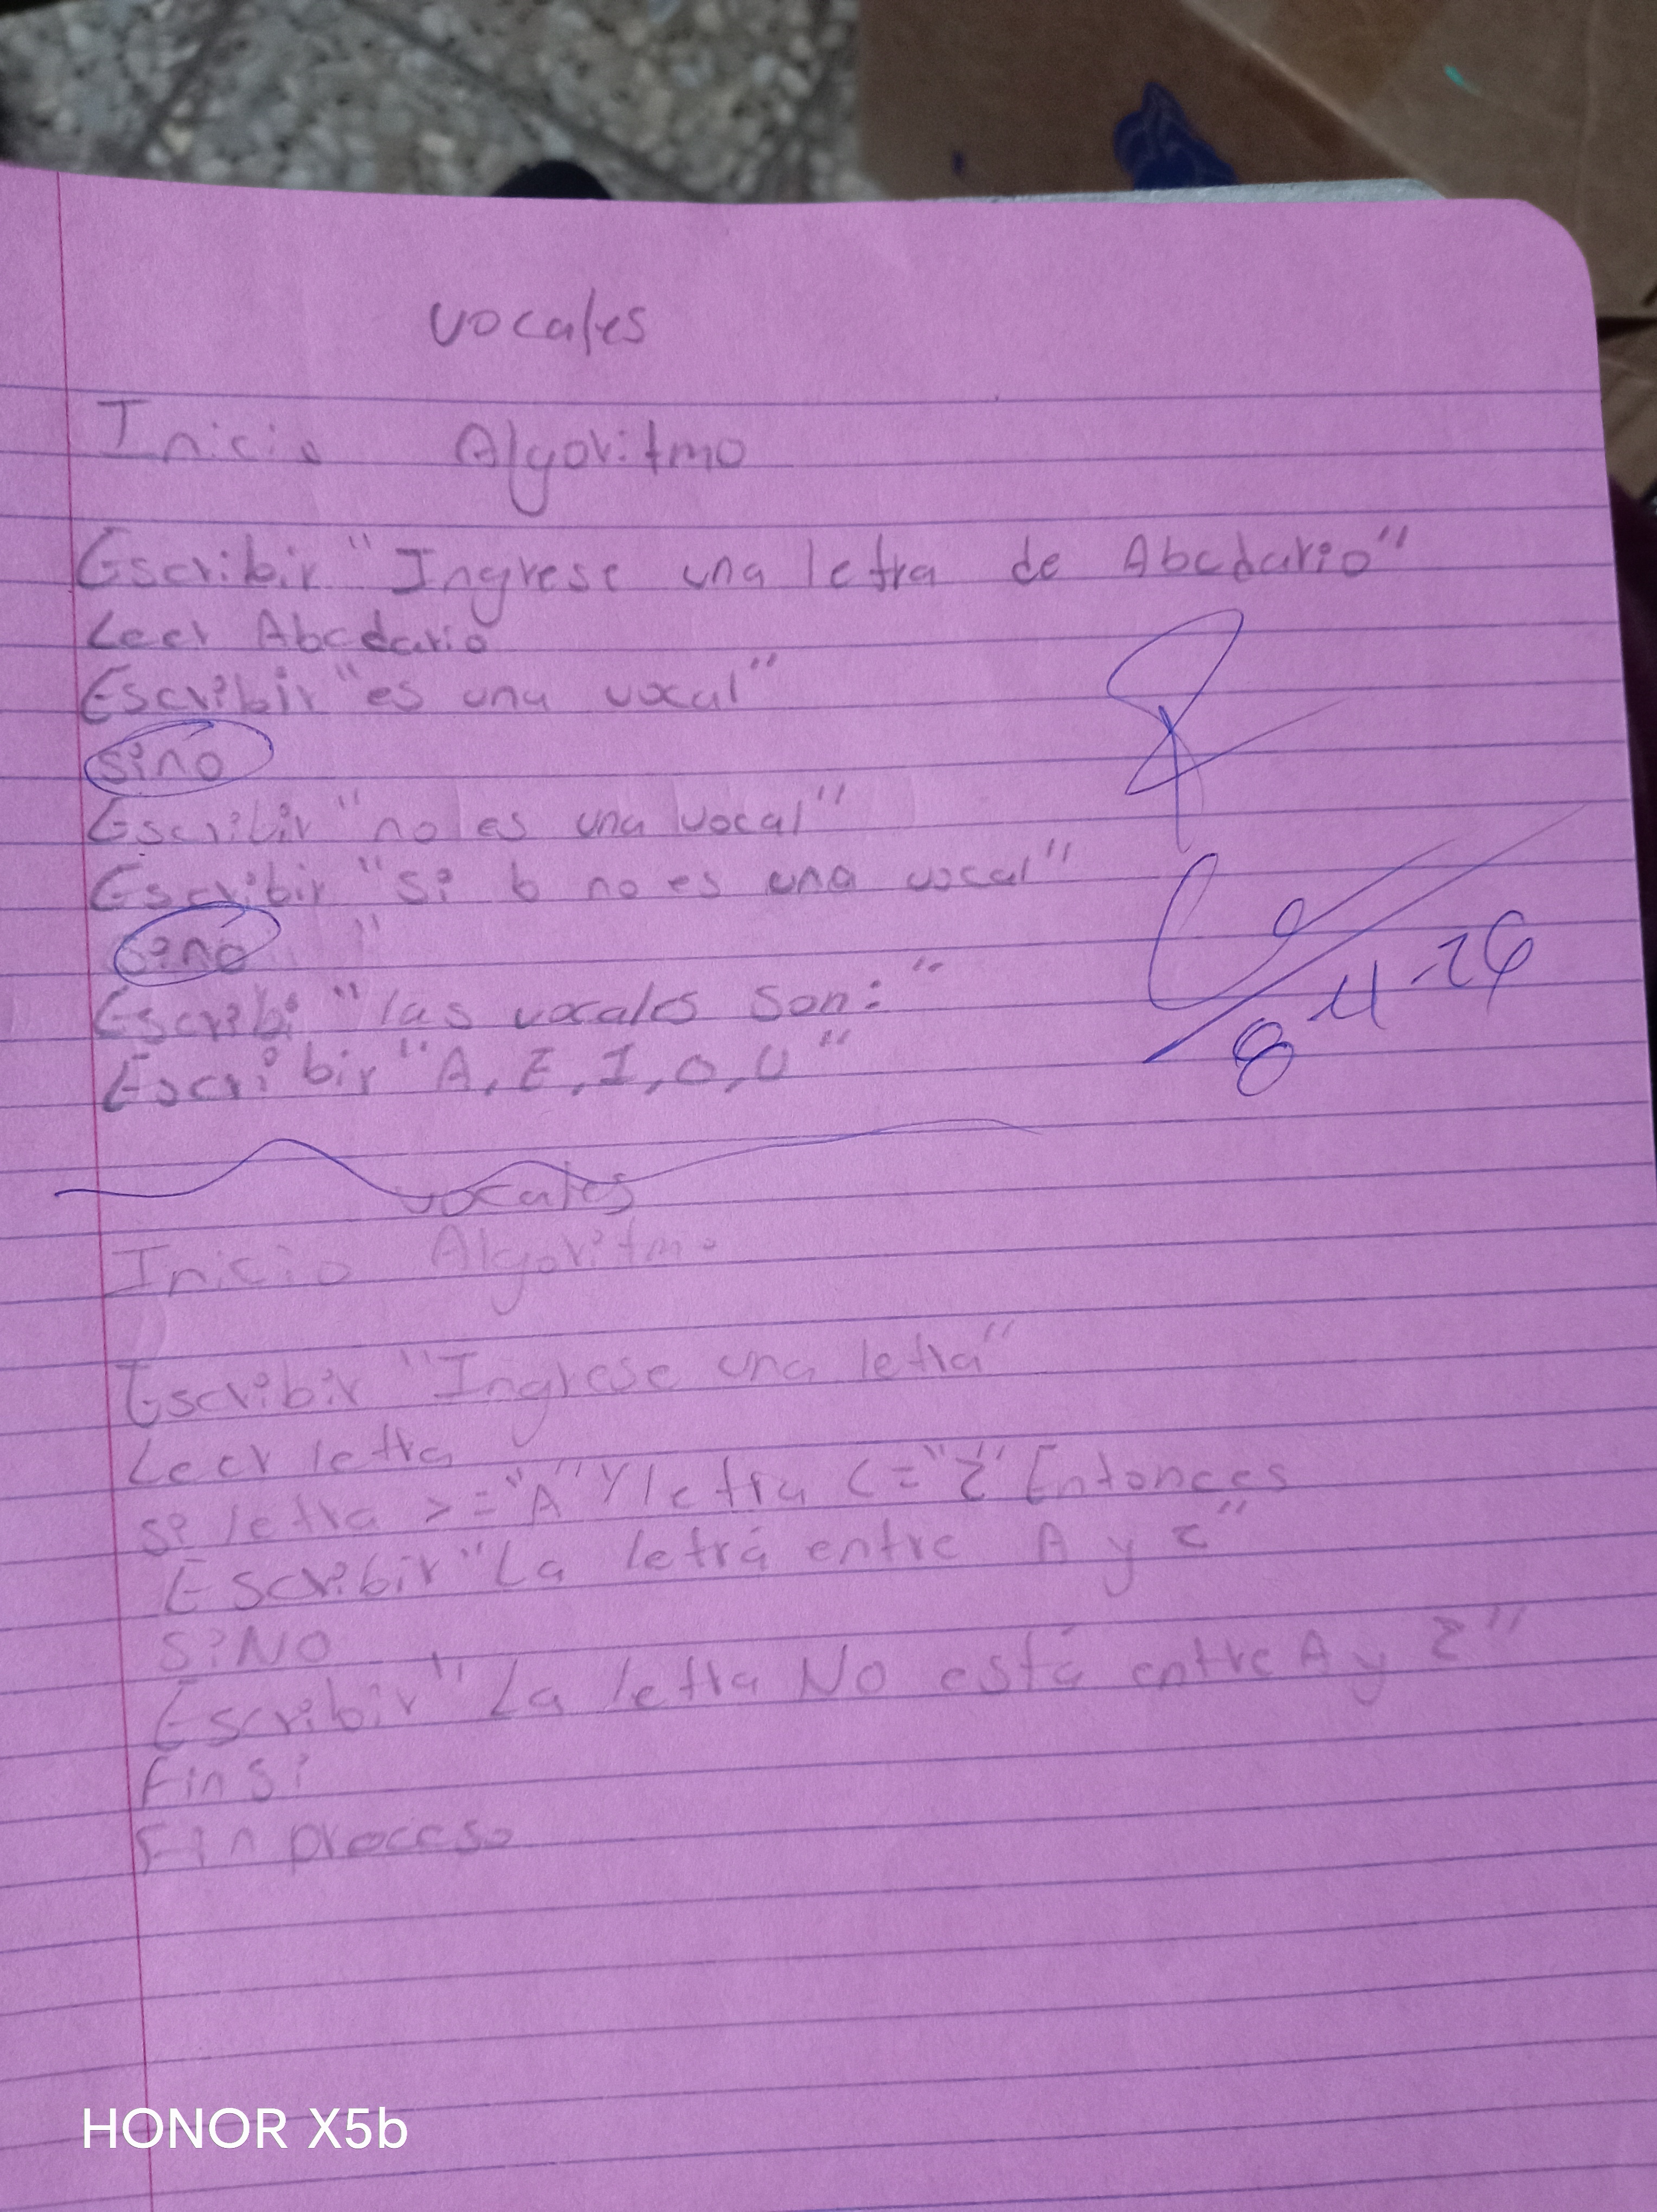 vocales
Inicio Algoritmo
Escribir "Ingrese una letra de Abcdario"
Leer Abcdario
Escribir "es una vocal"
sino
Escribir "no es una vocal"
Escribir "si b no es una vocal"
sino "
Escribi "las vocales son:"
Escribir "A, E, I, O, U"
8-4-26
vocales
Inicio Algoritmo
Escribir "Ingrese una letra"
Leer letra
si letra >= "A" Y letra <= "Z" Entonces
Escribir "La letra entre A y z"
SiNO
Escribir "La letra No está entre A y Z"
Fin Si
Fin proceso
HONOR X5b